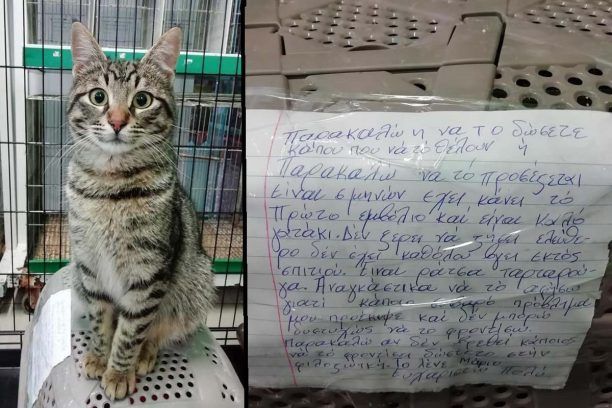 Παρακαλώ η να το δώσετε
κάπου που να το θέλουν ή
Παρακαλώ να το προσέξεται
Είναι 5 μηνών έχει κάνει το
Πρώτο εμβόλιο και είναι καλό
γατάκι. Δεν ξέρει να ζήσει ελεύθε
ρο δεν έχει καθόλου βγει εκτός
σπιτιού. Είναι ράτσα ταρταρού
γα. Αναγκάστικα να το αφήσω
γιατί κάποιο σοβαρό πρόβλημα
μου προέκυψε και δεν μπορώ
δυστυχώς να το φροντίσω.
Παρακαλώ αν δεν βρεθεί κάποιος
να το φροντίσει δώστε το στην
φιλοζωική. Το λένε Μάριο
Ευχαριστώ Πολύ